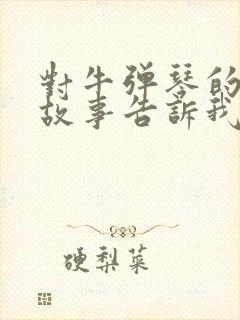 對牛弹琴的
故事告訴我
硬梨菜